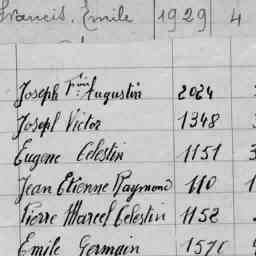 Francis, Emile 1929 4
Joseph Fois Augustin 2024
Joseph Victor 1348
Eugene Celestin 1151
Jean Etienne Raymond 110 1
Pierre Marcel Celestin 1152
Emile Germain 1570